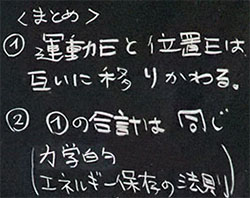 <まとめ>
① 運動Eと位置Eは
互いに移りかわる。
② ①の合計は 同じ
(力学的
エネルギー保存の法則)